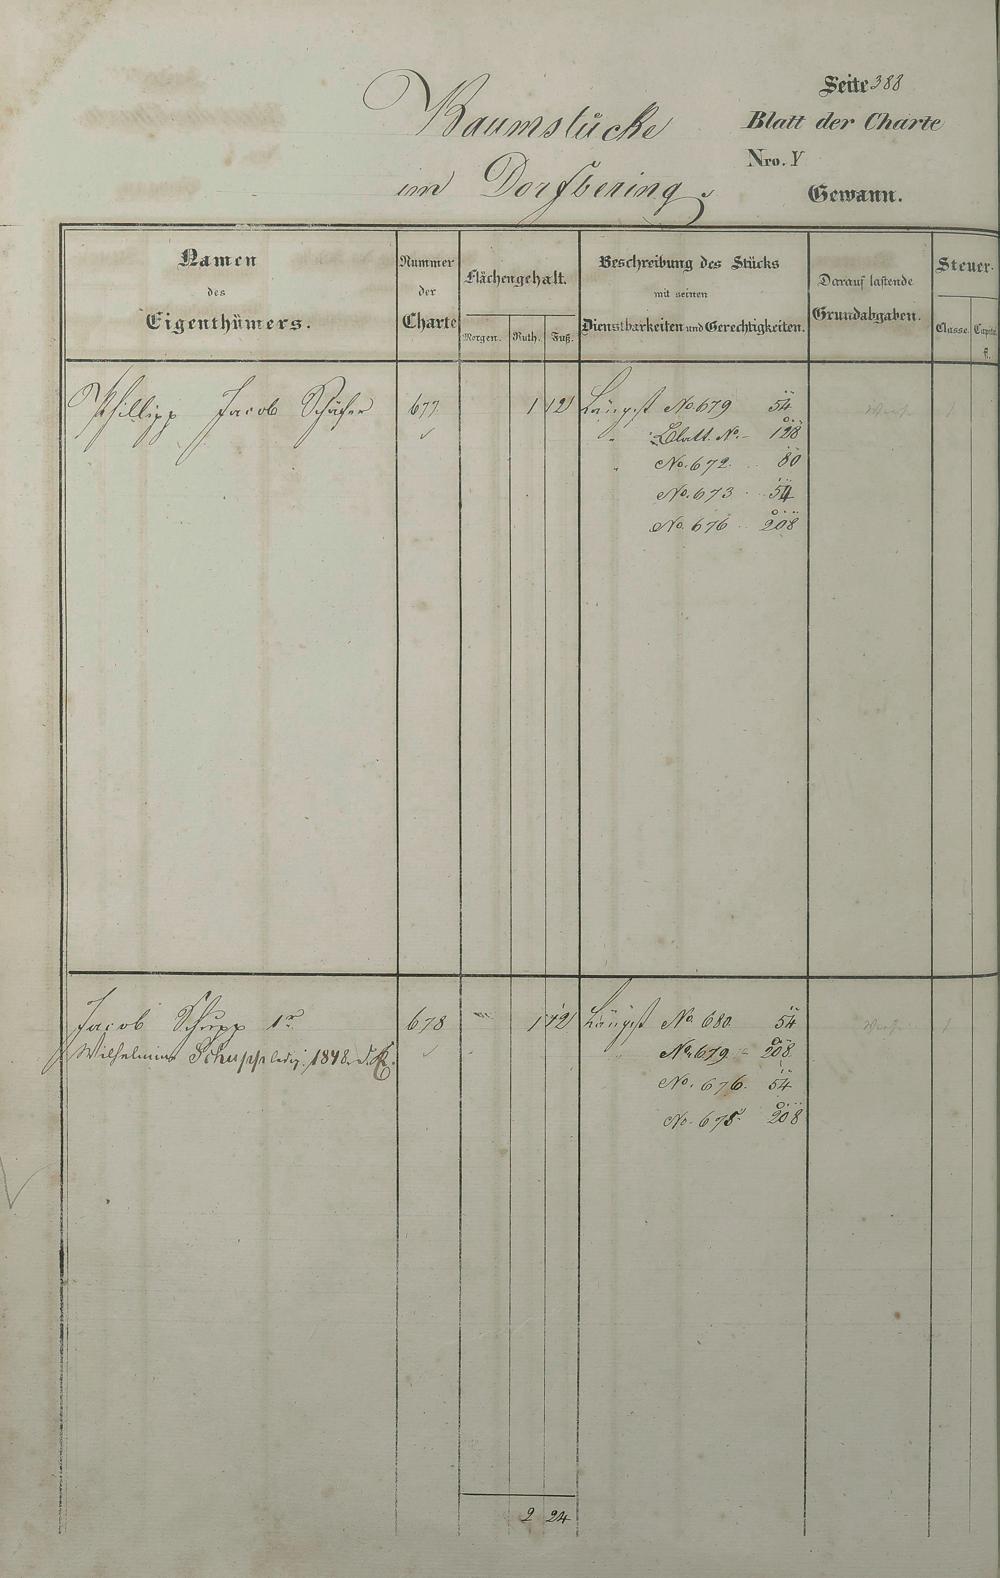 Baumstücke
im Dorfbering.
Seite 388
Blatt der Charte
Nro. V
Gewann.
Namen
des
Eigenthümers.
Nummer
der
Charte
Flächengehalt.
Morgen. Ruth. Fuß.
Beschreibung des Stücks
mit seinen
Dienstbarkeiten und Gerechtigkeiten.
Darauf lastende
Grundabgaben.
Steuer-
Classe. Capital
fl.
Phillipp Jacob Schäfer 677 1 12 Längst No. 679 54
" Blatt. No. - 128
" No. 672. 80
No. 673 54
No. 676 208
Jacob Schupp 1r 678 1 12 Längst No. 680 54
Wilhelmine Schupp ledig: 1848.
No. 679 - 208
No. 676. 54
No. 678 208
2 24